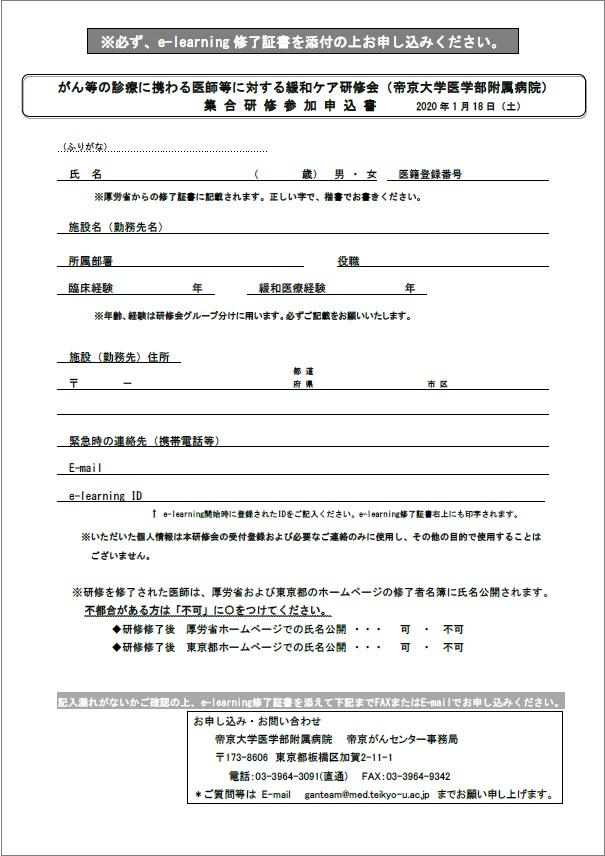 ※必ず、e-learning 修了証書を添付の上お申し込みください。
がん等の診療に携わる医師等に対する緩和ケア研修会（帝京大学医学部附属病院）
集 合 研 修 参 加 申 込 書　2020 年 1 月 18 日（土）
（ふりがな）
氏　名　（　歳）　男 ・ 女　医籍登録番号
※厚労省からの修了証書に記載されます。正しい字で、楷書でお書きください。
施設名（勤務先名）
所属部署　役職
臨床経験　年　緩和医療経験　年
※年齢、経験は研修会グループ分けに用います。必ずご記載をお願いいたします。
施設（勤務先）住所
都 道
〒　－　府 県　市 区
緊急時の連絡先（携帯電話等）
E-mail
e-learning ID
↑ e-learning開始時に登録されたIDをご記入ください。e-learning修了証書右上にも印字されます。
※いただいた個人情報は本研修会の受付登録および必要なご連絡のみに使用し、その他の目的で使用することは
ございません。
※研修を修了された医師は、厚労省および東京都のホームページの修了者名簿に氏名公開されます。
不都合がある方は「不可」に○をつけてください。
◆研修修了後　厚労省ホームページでの氏名公開 ・・・　可　・　不可
◆研修修了後　東京都ホームページでの氏名公開 ・・・　可　・　不可
記入漏れがないかご確認の上、e-learning修了証書を添えて下記までFAXまたはE-mailでお申し込みください。
お申し込み・お問い合わせ
帝京大学医学部附属病院　帝京がんセンター事務局
〒173-8606　東京都板橋区加賀2-11-1
電話:03-3964-3091(直通)　FAX:03-3964-9342
＊ご質問等は E-mail　ganteam@med.teikyo-u.ac.jp までお願い申し上げます。